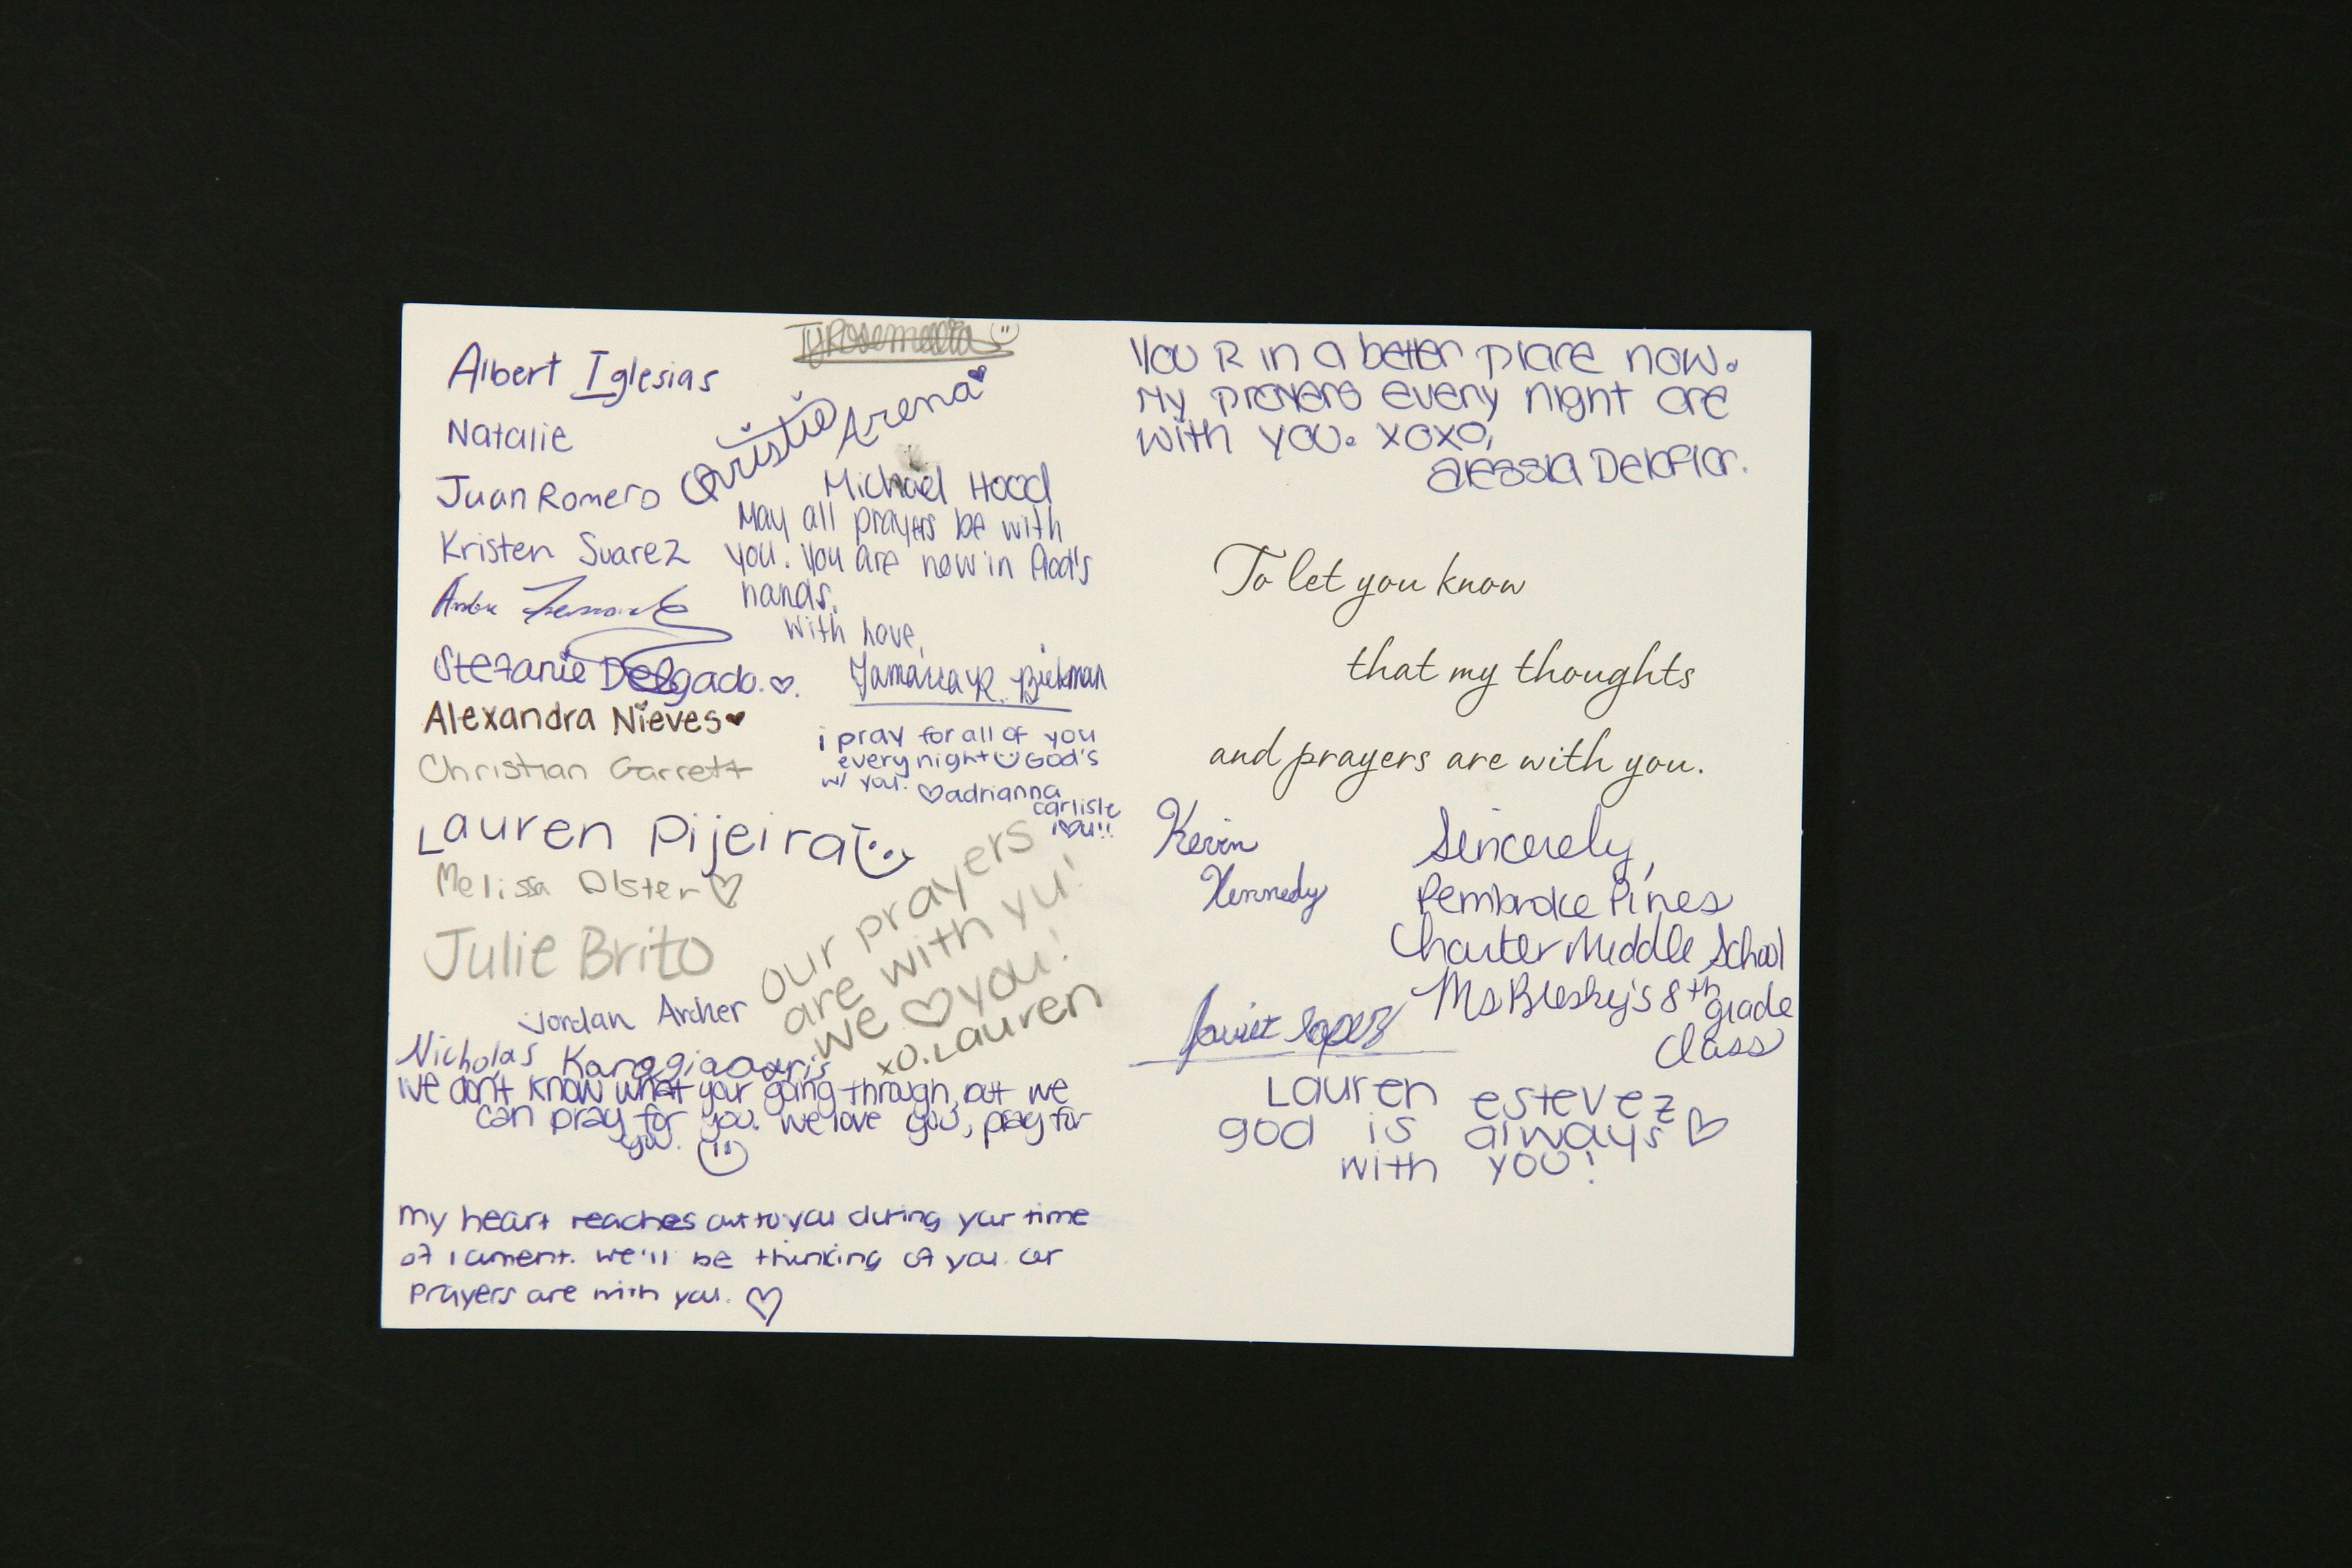 Albert Iglesias
Natalie
Juan Romero
Kristen Suarez
Stefanie Delgado. ♡.
Alexandra Nieves ♥
Christian Garrett
Lauren Pijeira
Melissa Olster ♡
Julie Brito
Jordan Archer
Nicholas
we don't know what your going through, but we
can pray for you. we love you, pray for
you.
my heart reaches out to you during your time
of lament. we'll be thinking of you. our
prayers are with you. ♡
Christie Arena ♥
Michael Hood
May all prayers be with
you. You are now in God's
hands.
With Love,
i pray for all of you
every night God's
w/ you. ♡ adrianna
carlisle
i ♡ u!!
our prayers
are with yu!
we ♡ you!
xo. Lauren
You R in a better place now.
My prayers every night are
with you. xoxo,
alessia Delaflor.
To let you know
that my thoughts
and prayers are with you.
Kevin
Kennedy
Sincerely,
Pembroke Pines
Charter Middle School
8th grade
Class
Lauren estevez
god is always ♡
with you!